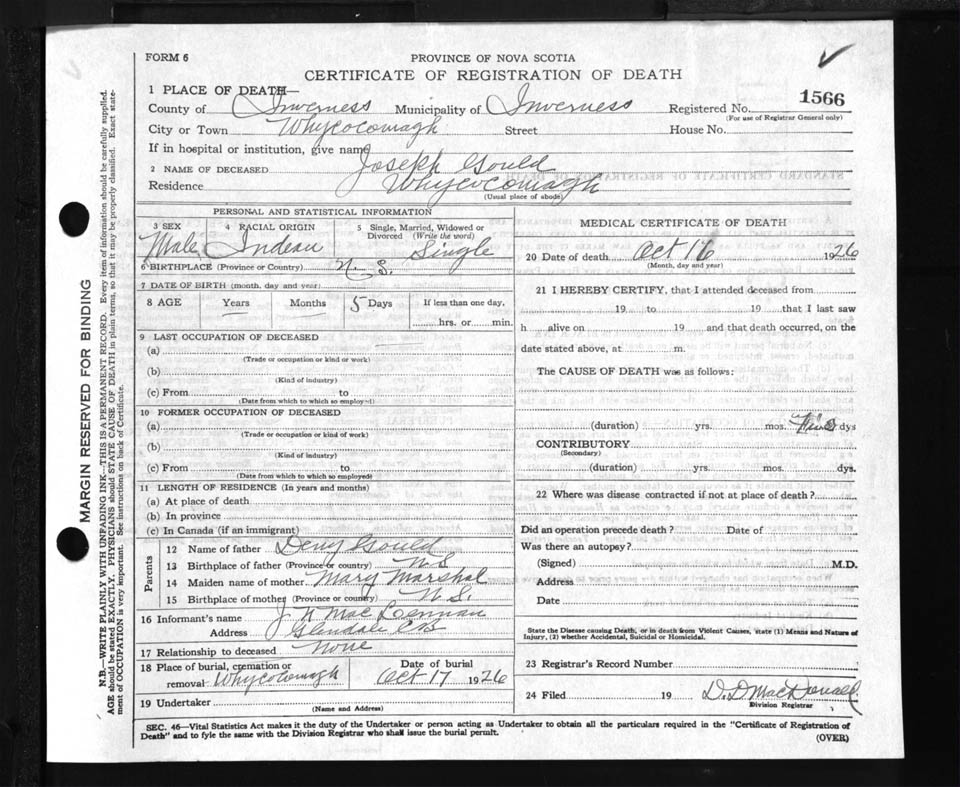 FORM 6
PROVINCE OF NOVA SCOTIA
CERTIFICATE OF REGISTRATION OF DEATH
1 PLACE OF DEATH—
1566
County of Inverness Municipality of Inverness Registered No.
(For use of Registrar General only)
City or Town Whycocomagh Street House No.
If in hospital or institution, give name
2 NAME OF DECEASED Joseph Gould
Residence Whycocomagh
(Usual place of abode)
PERSONAL AND STATISTICAL INFORMATION
3 SEX 4 RACIAL ORIGIN 5 Single, Married, Widowed or
Divorced (Write the word)
Male Indean Single
6 BIRTHPLACE (Province or Country) N. S.
7 DATE OF BIRTH (month, day and year)
8 AGE Years Months 5 Days If less than one day,
hrs. or min.
9 LAST OCCUPATION OF DECEASED
(a)
(Trade or occupation or kind or work)
(b)
(Kind of industry)
(c) From to
(Date from which to which so employed)
10 FORMER OCCUPATION OF DECEASED
(a)
(Trade or occupation or kind of work)
(b)
(Kind of industry)
(c) From to
(Date from which to which so employed)
11 LENGTH OF RESIDENCE (In years and months)
(a) At place of death
(b) In province
(c) In Canada (if an immigrant)
Parents
12 Name of father Deny Gould
13 Birthplace of father (Province or country) N S
14 Maiden name of mother Mary Marshal
15 Birthplace of mother (Province or country) N S.
16 Informant's name J N MacLennan
Address Glendale CB
17 Relationship to deceased None
18 Place of burial, cremation or Date of burial
removal Whycocomagh Oct 17 1926
19 Undertaker
(Name and Address)
MEDICAL CERTIFICATE OF DEATH
20 Date of death Oct 16 1926
(Month, day and year)
21 I HEREBY CERTIFY, that I attended deceased from
19 to 19 that I last saw
h alive on 19 and that death occurred, on the
date stated above, at m.
The CAUSE OF DEATH was as follows:
(duration) yrs. mos. dys
CONTRIBUTORY
(Secondary)
(duration) yrs. mos. dys.
22 Where was disease contracted if not at place of death?
Did an operation precede death? Date of
Was there an autopsy?
(Signed) M.D.
Address
Date
State the Disease causing Death, or in death from Violent Causes, state (1) Means and Nature of
Injury, (2) whether Accidental, Suicidal or Homicidal.
23 Registrar's Record Number
24 Filed 19 D. D MacDonald
Division Registrar
SEC. 46—Vital Statistics Act makes it the duty of the Undertaker or person acting as Undertaker to obtain all the particulars required in the "Certificate of Registration of
Death" and to fyle the same with the Division Registrar who shall issue the burial permit.
(OVER)
MARGIN RESERVED FOR BINDING
N.B.—WRITE PLAINLY WITH UNFADING INK—THIS IS A PERMANENT RECORD. Every item of information should be carefully supplied.
AGE should be stated EXACTLY. PHYSICIANS should STATE CAUSE OF DEATH in plain terms, so that it may be properly classified. Exact state-
ment of OCCUPATION is very important. See instructions on back of Certificate.